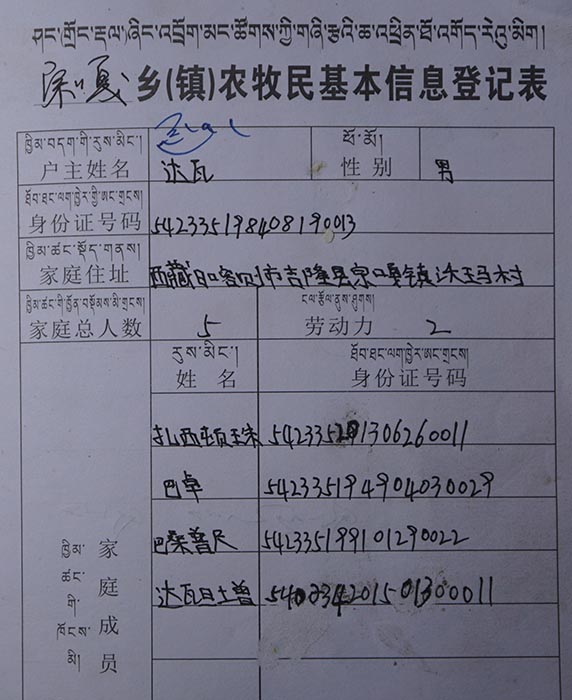 ཤང་གྲོང་རྡལ་ཞིང་འབྲོག་མང་ཚོགས་ཀྱི་གཞི་རྩའི་ཆ་འཕྲིན་ཐོ་འགོད་རེའུ་མིག།
宗嘎乡(镇)农牧民基本信息登记表
ཁྱིམ་བདག་གི་རུས་མིང་།
户主姓名 达瓦
ཕོ་མོ།
性别 男
ཐོབ་ཐང་ལག་ཁྱེར་གྱི་ཨང་གྲངས།
身份证号码 542335198408190013
ཁྱིམ་ཚང་སྡོད་གནས།
家庭住址 西藏日喀则市吉隆县宗嘎镇沃玛村
ཁྱིམ་ཚང་གི་ཁྱོན་བསྡོམས་མི་གྲངས།
家庭总人数 5
ངལ་རྩོལ་ནུས་ཤུགས།
劳动力 2
རུས་མིང་།
姓名
ཐོབ་ཐང་ལག་ཁྱེར་ཨང་གྲངས།
身份证号码
扎西顿珠 542335201306260011
巴卓 542335194904030029
巴桑普尺 542335199101290022
达瓦旦增 540234201501300011
ཁྱིམ་ཚང་གི་ཁོངས་མི།
家庭成员